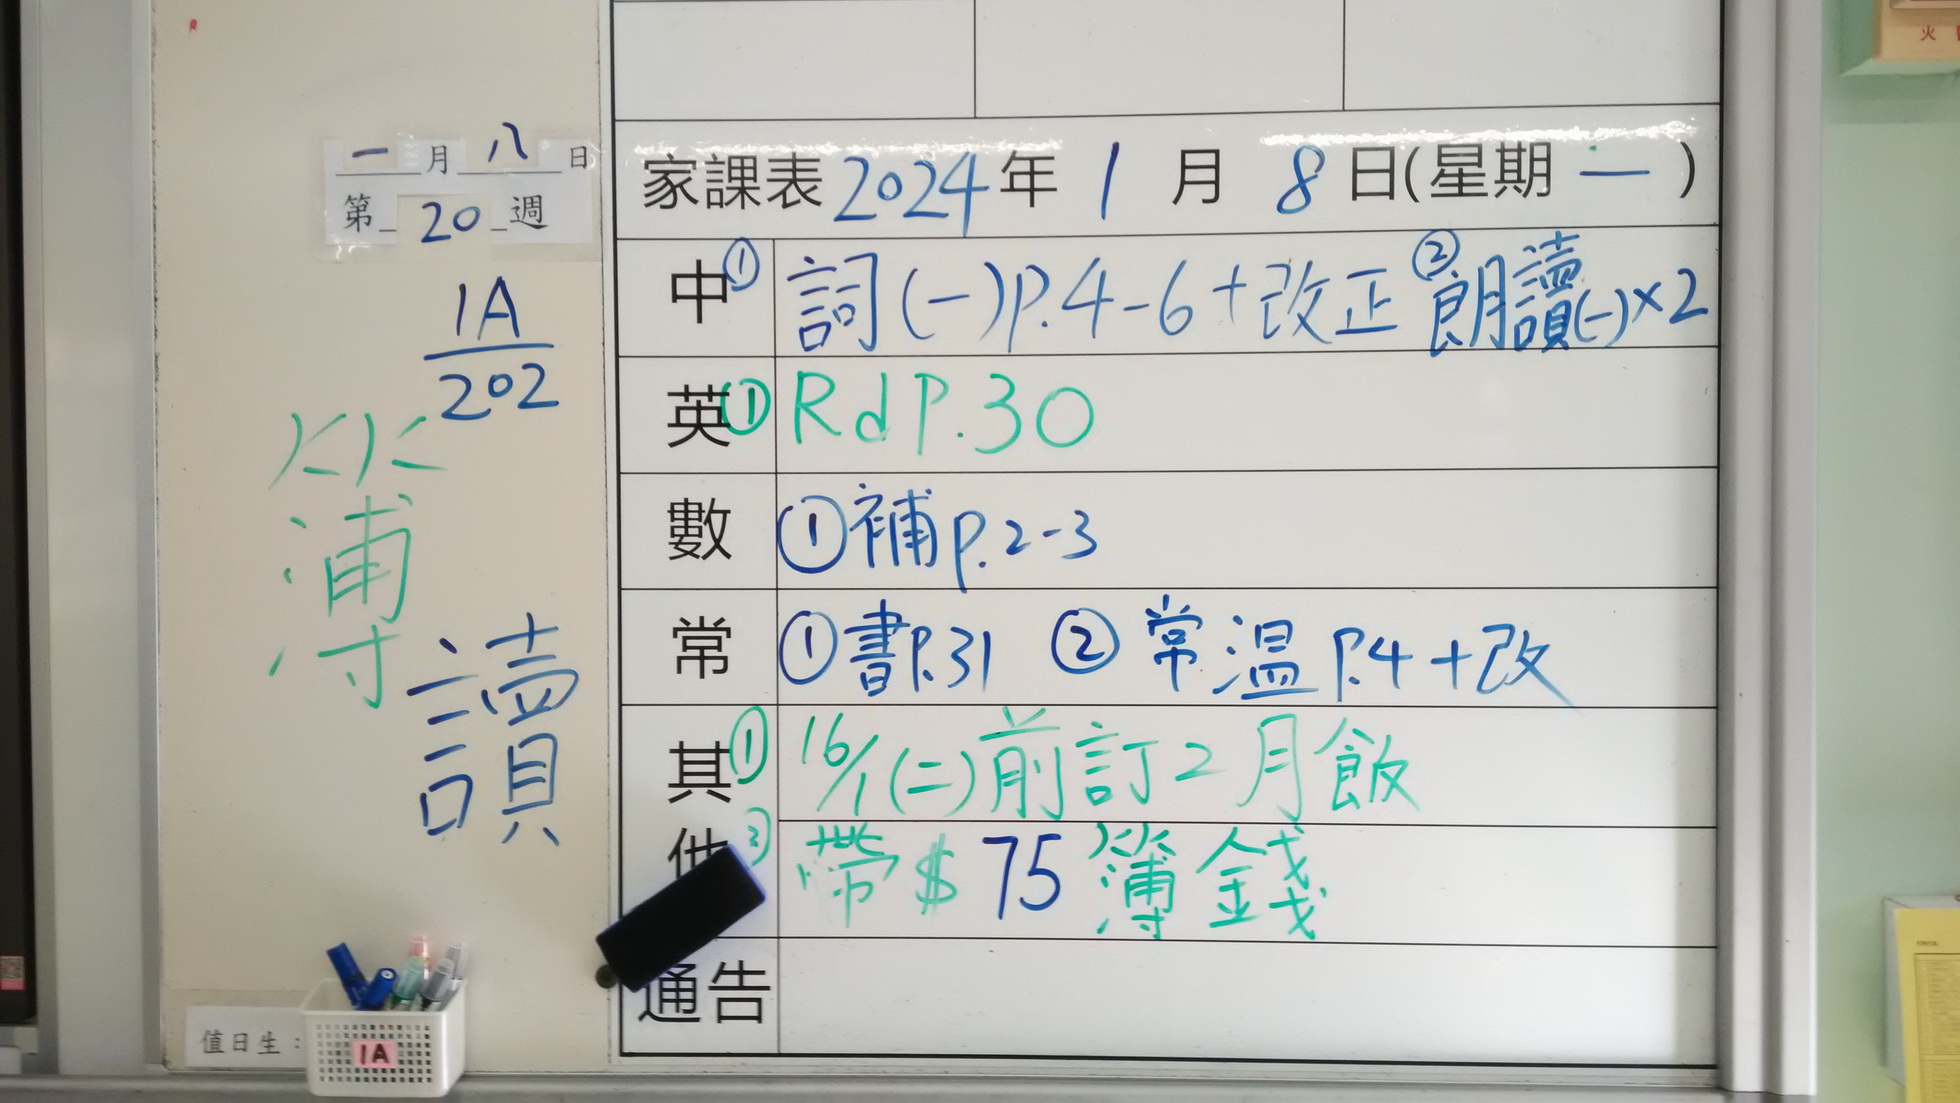 一月八日
第20週
1A
202
簿
讀
值日生：
1A
家課表2024年1月8日(星期一)
中 ①詞(一)P.4-6+改正 ②朗讀(一)×2
英 ①Rd P.30
數 ①補p.2-3
常 ①書P.31 ②常溫P.4+改
其他 ①16/1(二)前訂2月飯
②帶$75簿錢
通告
火